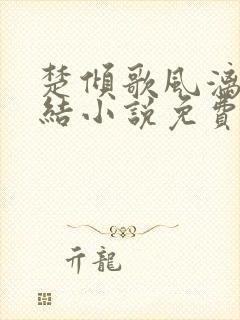 楚傾歌風漓
結小說免費
亓龍